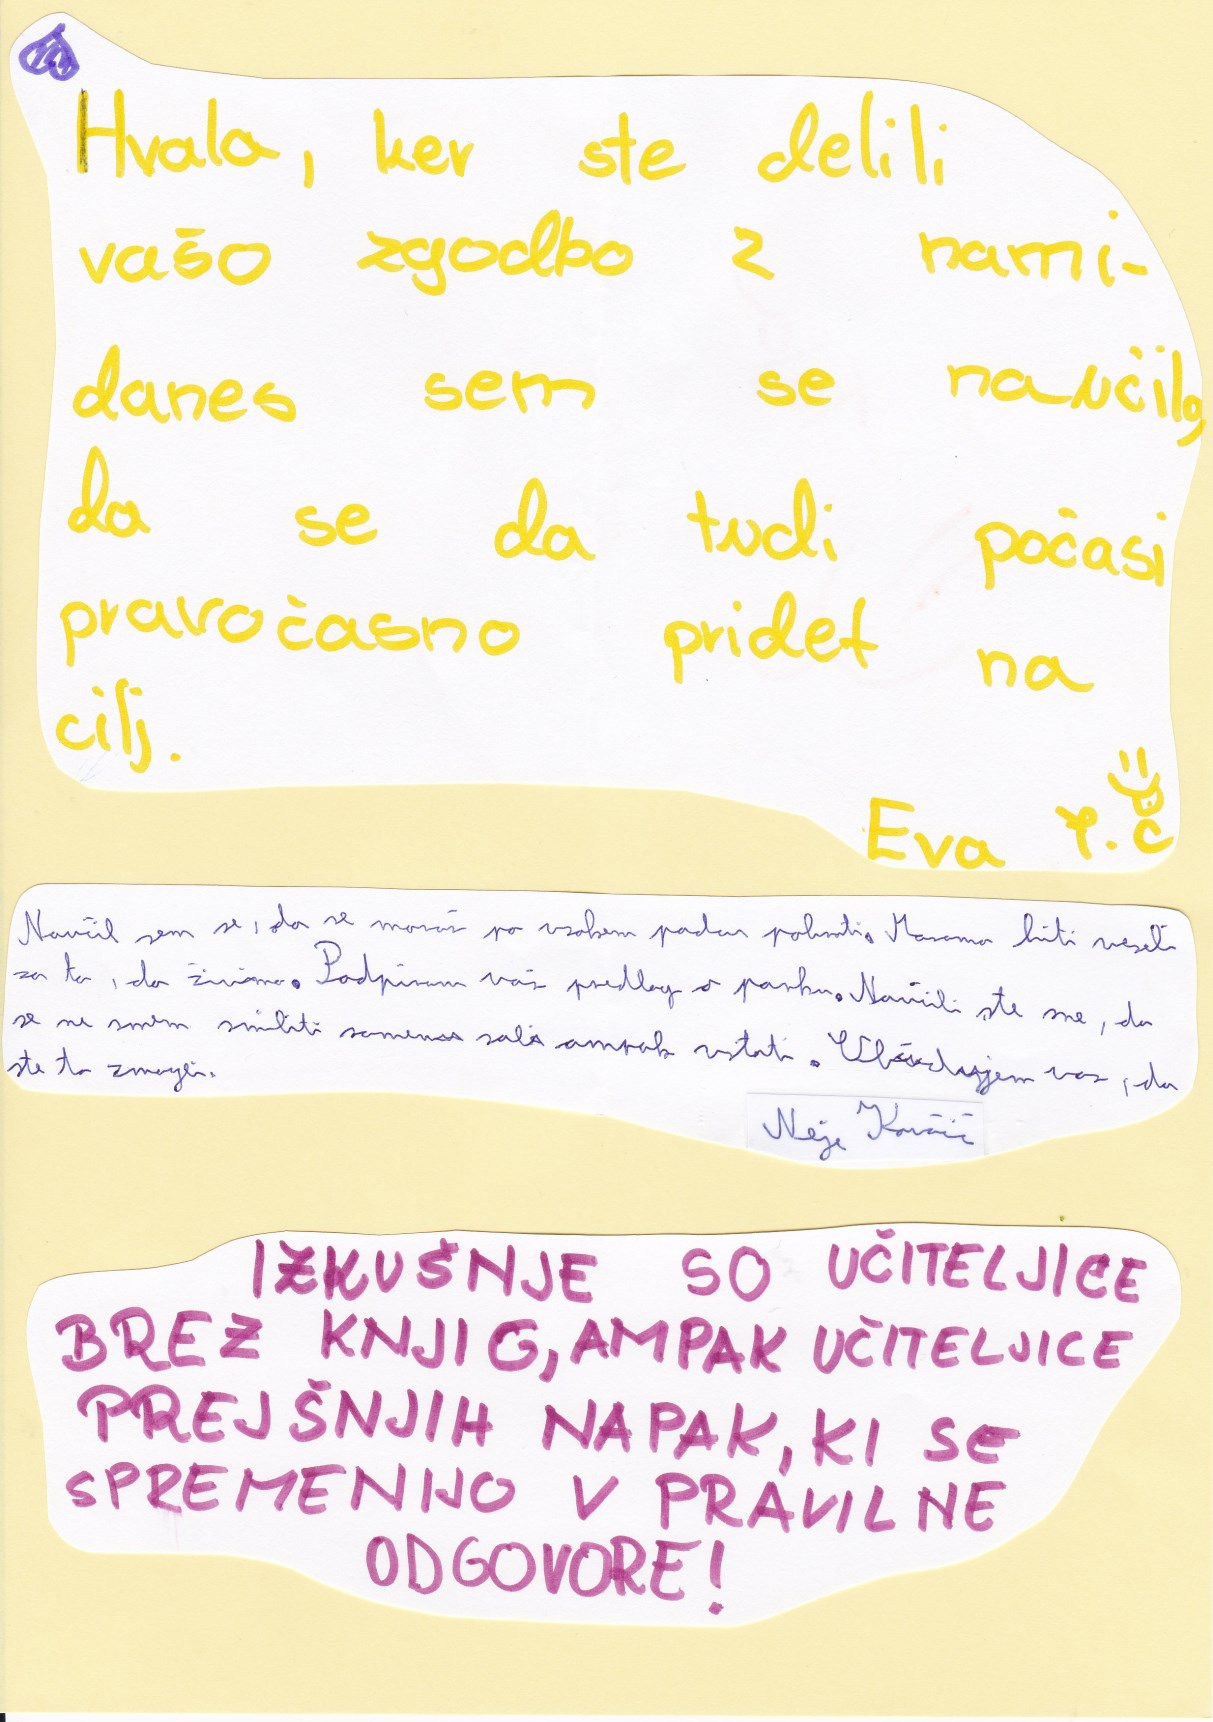 Hvala, ker ste delili
vašo zgodbo z nami-
danes sem se naučila,
da se da tudi počasi
pravočasno pridet na
cilj.
Eva
Naučil sem se, da se moraš po vsakem padcu pobrati. Moramo biti veseli
za to, da živimo. Podpiram vaš predlog o parku. Naučili ste me, da
se ne smem smiliti samemu sebi ampak vstati. Občudujem vas, da
ste to zmogli.
Nejc Kovačič
IZKUŠNJE SO UČITELJICE
BREZ KNJIG, AMPAK UČITELJICE
PREJŠNJIH NAPAK, KI SE
SPREMENIJO V PRAVILNE
ODGOVORE!